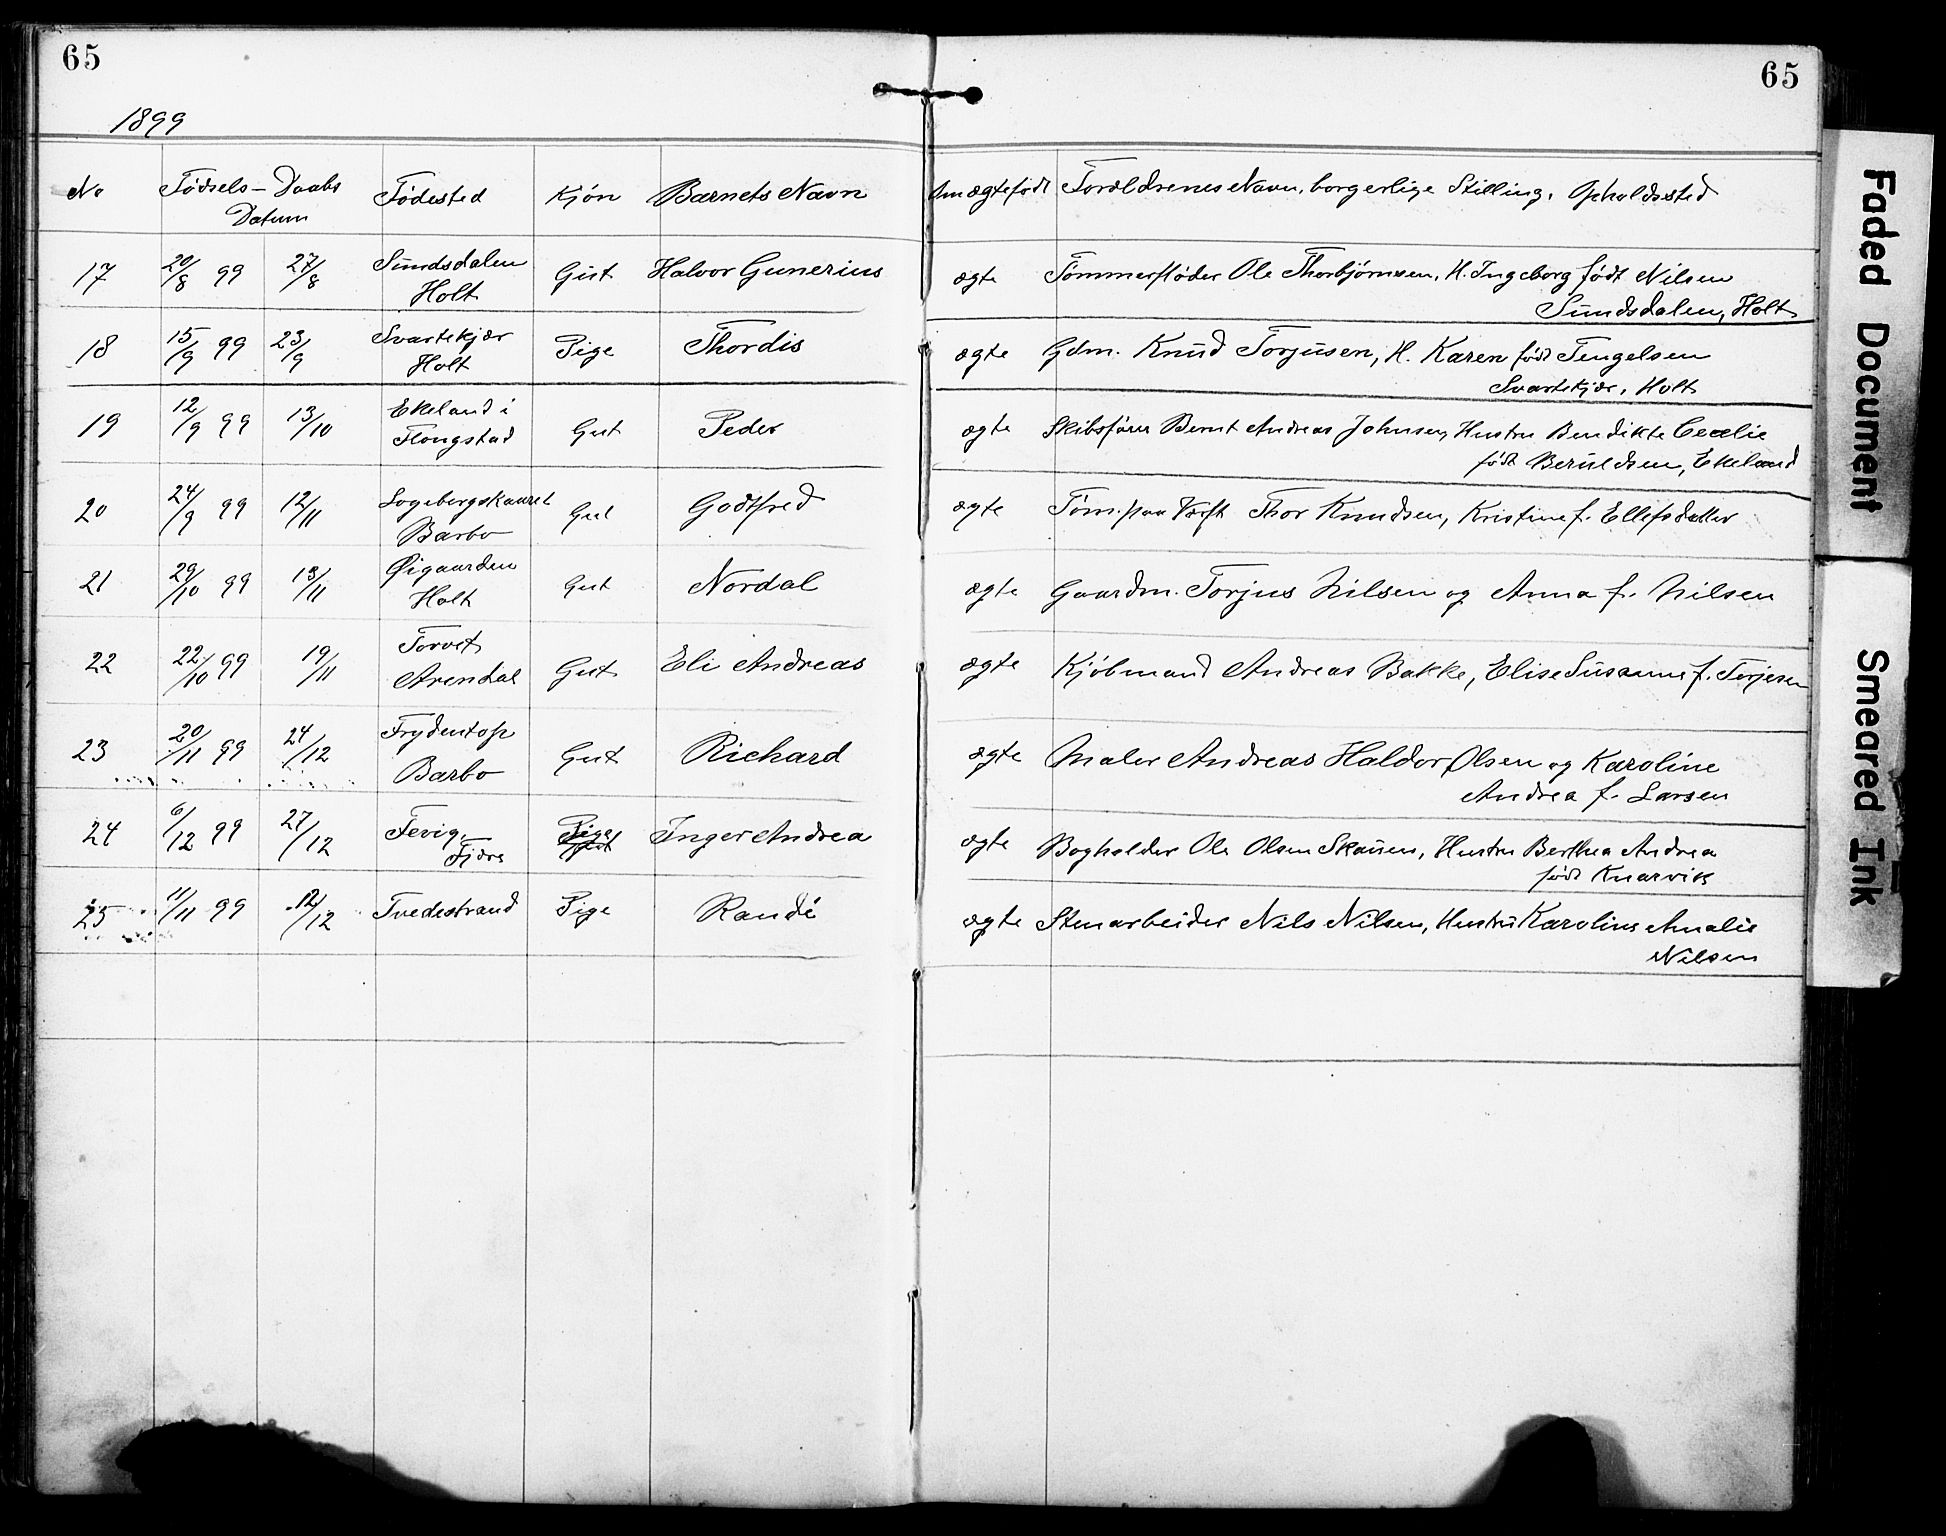 65
65
1899
No Fødsels- Daabs Datum Fødested Kjøn Barnets Navn Om ægtefødt Forældrenes Navn, borgerlige Stilling, Opholdssted
17 20/8 99 27/8 Sundsdalen Gut Halvor Gunerius ægte Tømmerfløder Ole Thorbjørnsen, H. Ingeborg født Nilsen
Holt Sundsdalen, Holt
18 15/9 99 23/9 Svartekjær Pige Thordis ægte Gdm. Knud Torjusen, H. Karen født Tengelsen
Holt Svartekjær, Holt
19 12/9 99 13/10 Ekeland i Gut Peder ægte Skibsfører Bernt Andreas Johnsen, Hustru Bendikte Cecelie
Flongstad født Beruldsen, Ekeland
20 24/9 99 12/11 Gut Godtfred ægte Tøm. paa Værft Thor Knudsen, Kristine f. Ellefsdatter
Barbo
21 29/10 99 13/11 Øigaarden Gut Nordal ægte Gaardm. Torjus Nilsen og Anna f. Nilsen
Holt
22 22/10 99 19/11 Torvet Gut Eli Andreas ægte Kjøbmand Andreas Bakke, Elise Susanne f. Torjesen
Arendal
23 20/11 99 24/12 Frydentop Gut Richard ægte Maler Andreas Haldor Olsen og Karoline
Barbo Andrea f. Larsen
24 6/12 99 27/12 Fevig, Pige Inger Andrea ægte Bogholder Ole Olsen Skausen, Hustru Berthea Andrea
Fjære født Knarvik
25 11/11 99 12/12 Tvedestrand Pige Randé ægte Stenarbeider Nils Nilsen, Hustru Karoline Amalie
Nilsen
Faded Document
Smeared Ink